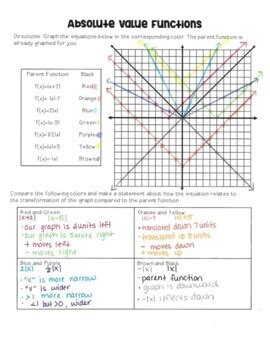 Absolute Value Functions
Directions: Graph the equations below in the corresponding color. The parent function is
already graphed for you.
Parent Function Black
f(x)=|x+2| Red
f(x)= |x|-7 Orange
Blue
f(x)=|x-5| Green
f(x)=1/2|x| Purple
f(x)=|x|+5 Yellow
f(x)= -|x| Brown
Compare the following colors and make a statement about how the equation relates to
the transformation of the graph compared to the parent function
Red and Green
|x+2| |x-5|
• our graph is 2 units left
• our graph is 5 units right
+ moves left
- moves right
Orange and Yellow
|x|-7 |x|+5
• translated down 7 units
• translated up 5 units
- moves down
+ moves up
Blue and Purple
2|x| ½|x|
• "V" is more narrow
• "V" is wider
• >1 more narrow
• <1 but >0, wider
Brown and Black
-|x| |x|
• parent function
• graph is downward
• -|x| reflects down